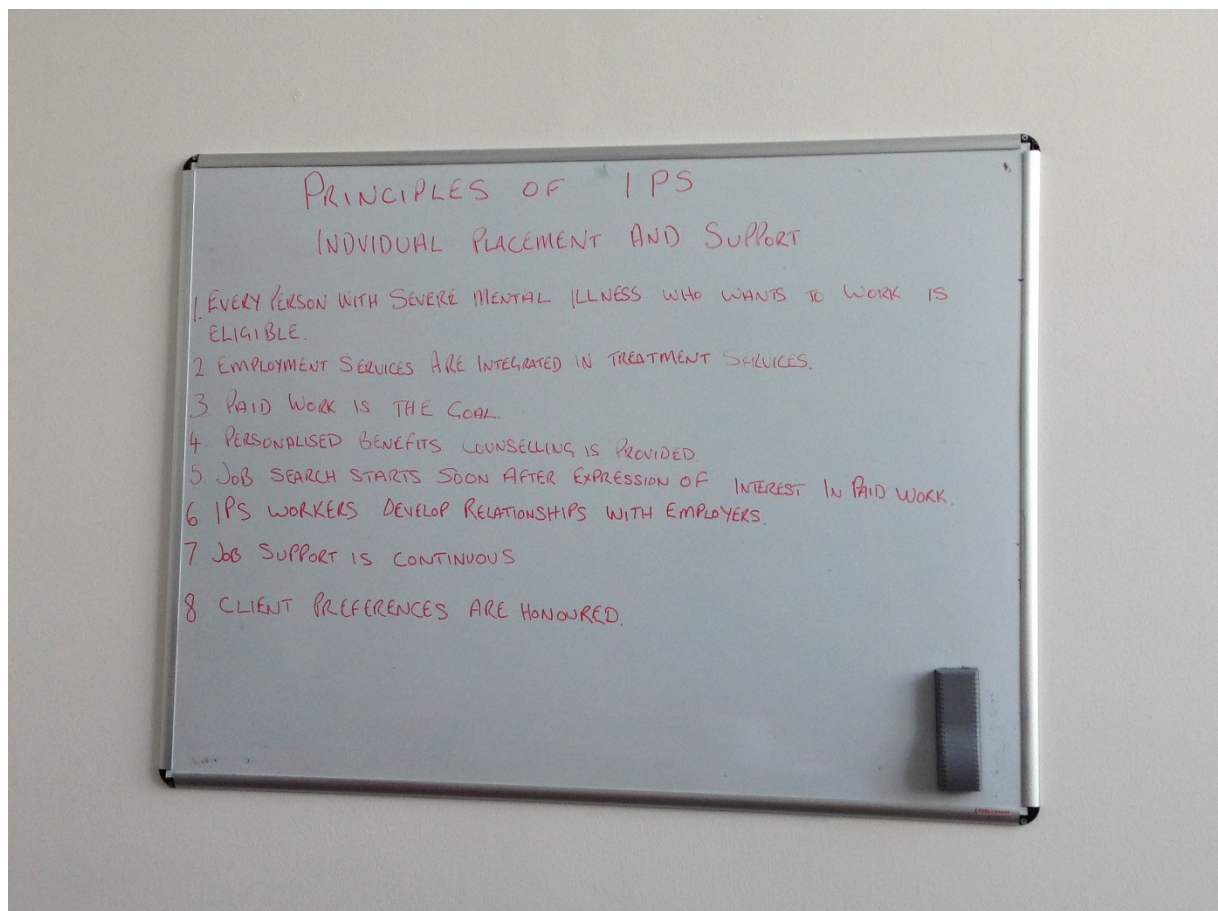 PRINCIPLES OF IPS
INDVIDUAL PLACEMENT AND SUPPORT
1. EVERY PERSON WITH SEVERE MENTAL ILLNESS WHO WANTS TO WORK IS
ELIGIBLE.
2 EMPLOYMENT SERVICES ARE INTEGRATED IN TREATMENT SERVICES.
3 PAID WORK IS THE GOAL.
4 PERSONALISED BENEFITS COUNSELLING IS PROVIDED
5 JOB SEARCH STARTS SOON AFTER EXPRESSION OF INTEREST IN PAID WORK.
6 IPS WORKERS DEVELOP RELATIONSHIPS WITH EMPLOYERS.
7 JOB SUPPORT IS CONTINUOUS
8 CLIENT PREFERENCES ARE HONOURED.